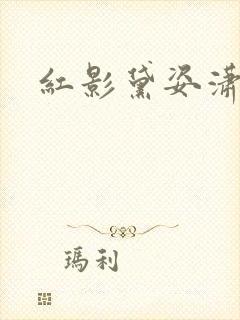 紅影黛姿瀟
瑪利